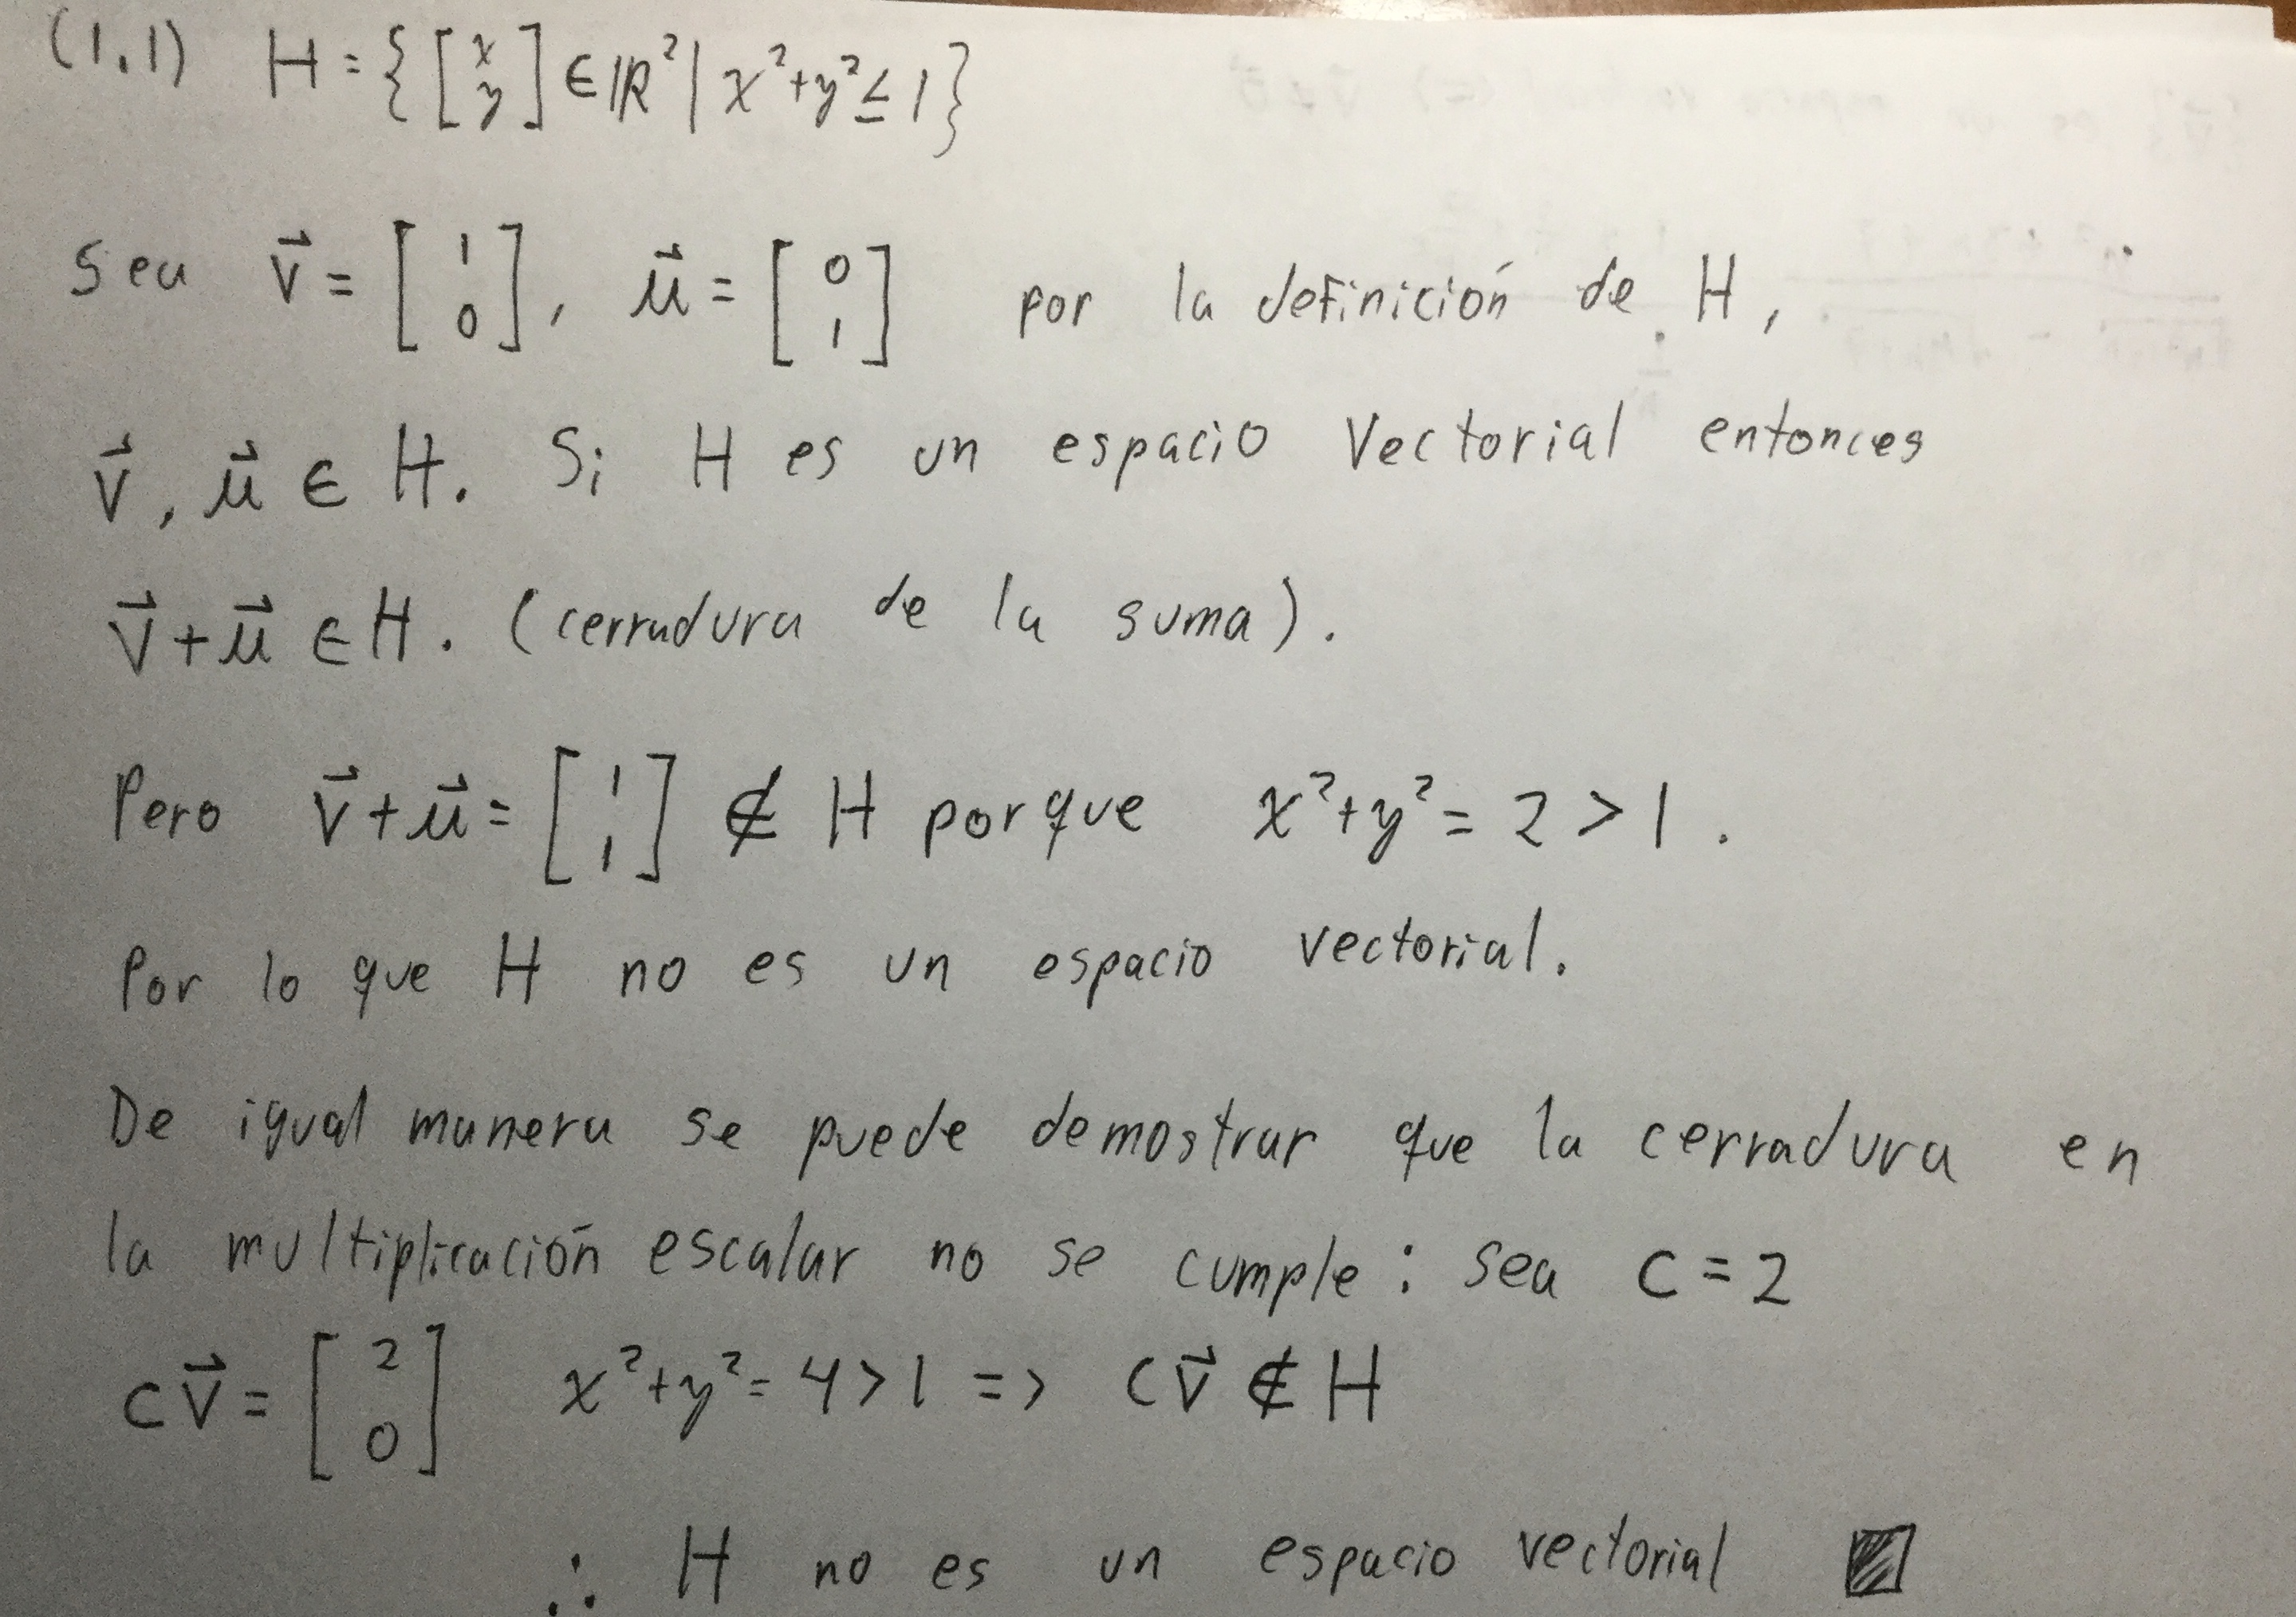 (1.1) H = { [x y] ∈ ℝ² | x² + y² ≤ 1 }
Sea v⃗ = [1 0], μ⃗ = [0 1] por la definición de H,
v⃗, μ⃗ ∈ H. Si H es un espacio Vectorial entonces
v⃗ + μ⃗ ∈ H. (cerradura de la suma).
Pero v⃗ + μ⃗ = [1 1] ∉ H porque x² + y² = 2 > 1.
Por lo que H no es un espacio vectorial.
De igual manera se puede demostrar que la cerradura en
la multiplicación escalar no se cumple: sea c = 2
c v⃗ = [2 0] x² + y² = 4 > 1 => c v⃗ ∉ H
∴ H no es un espacio vectorial